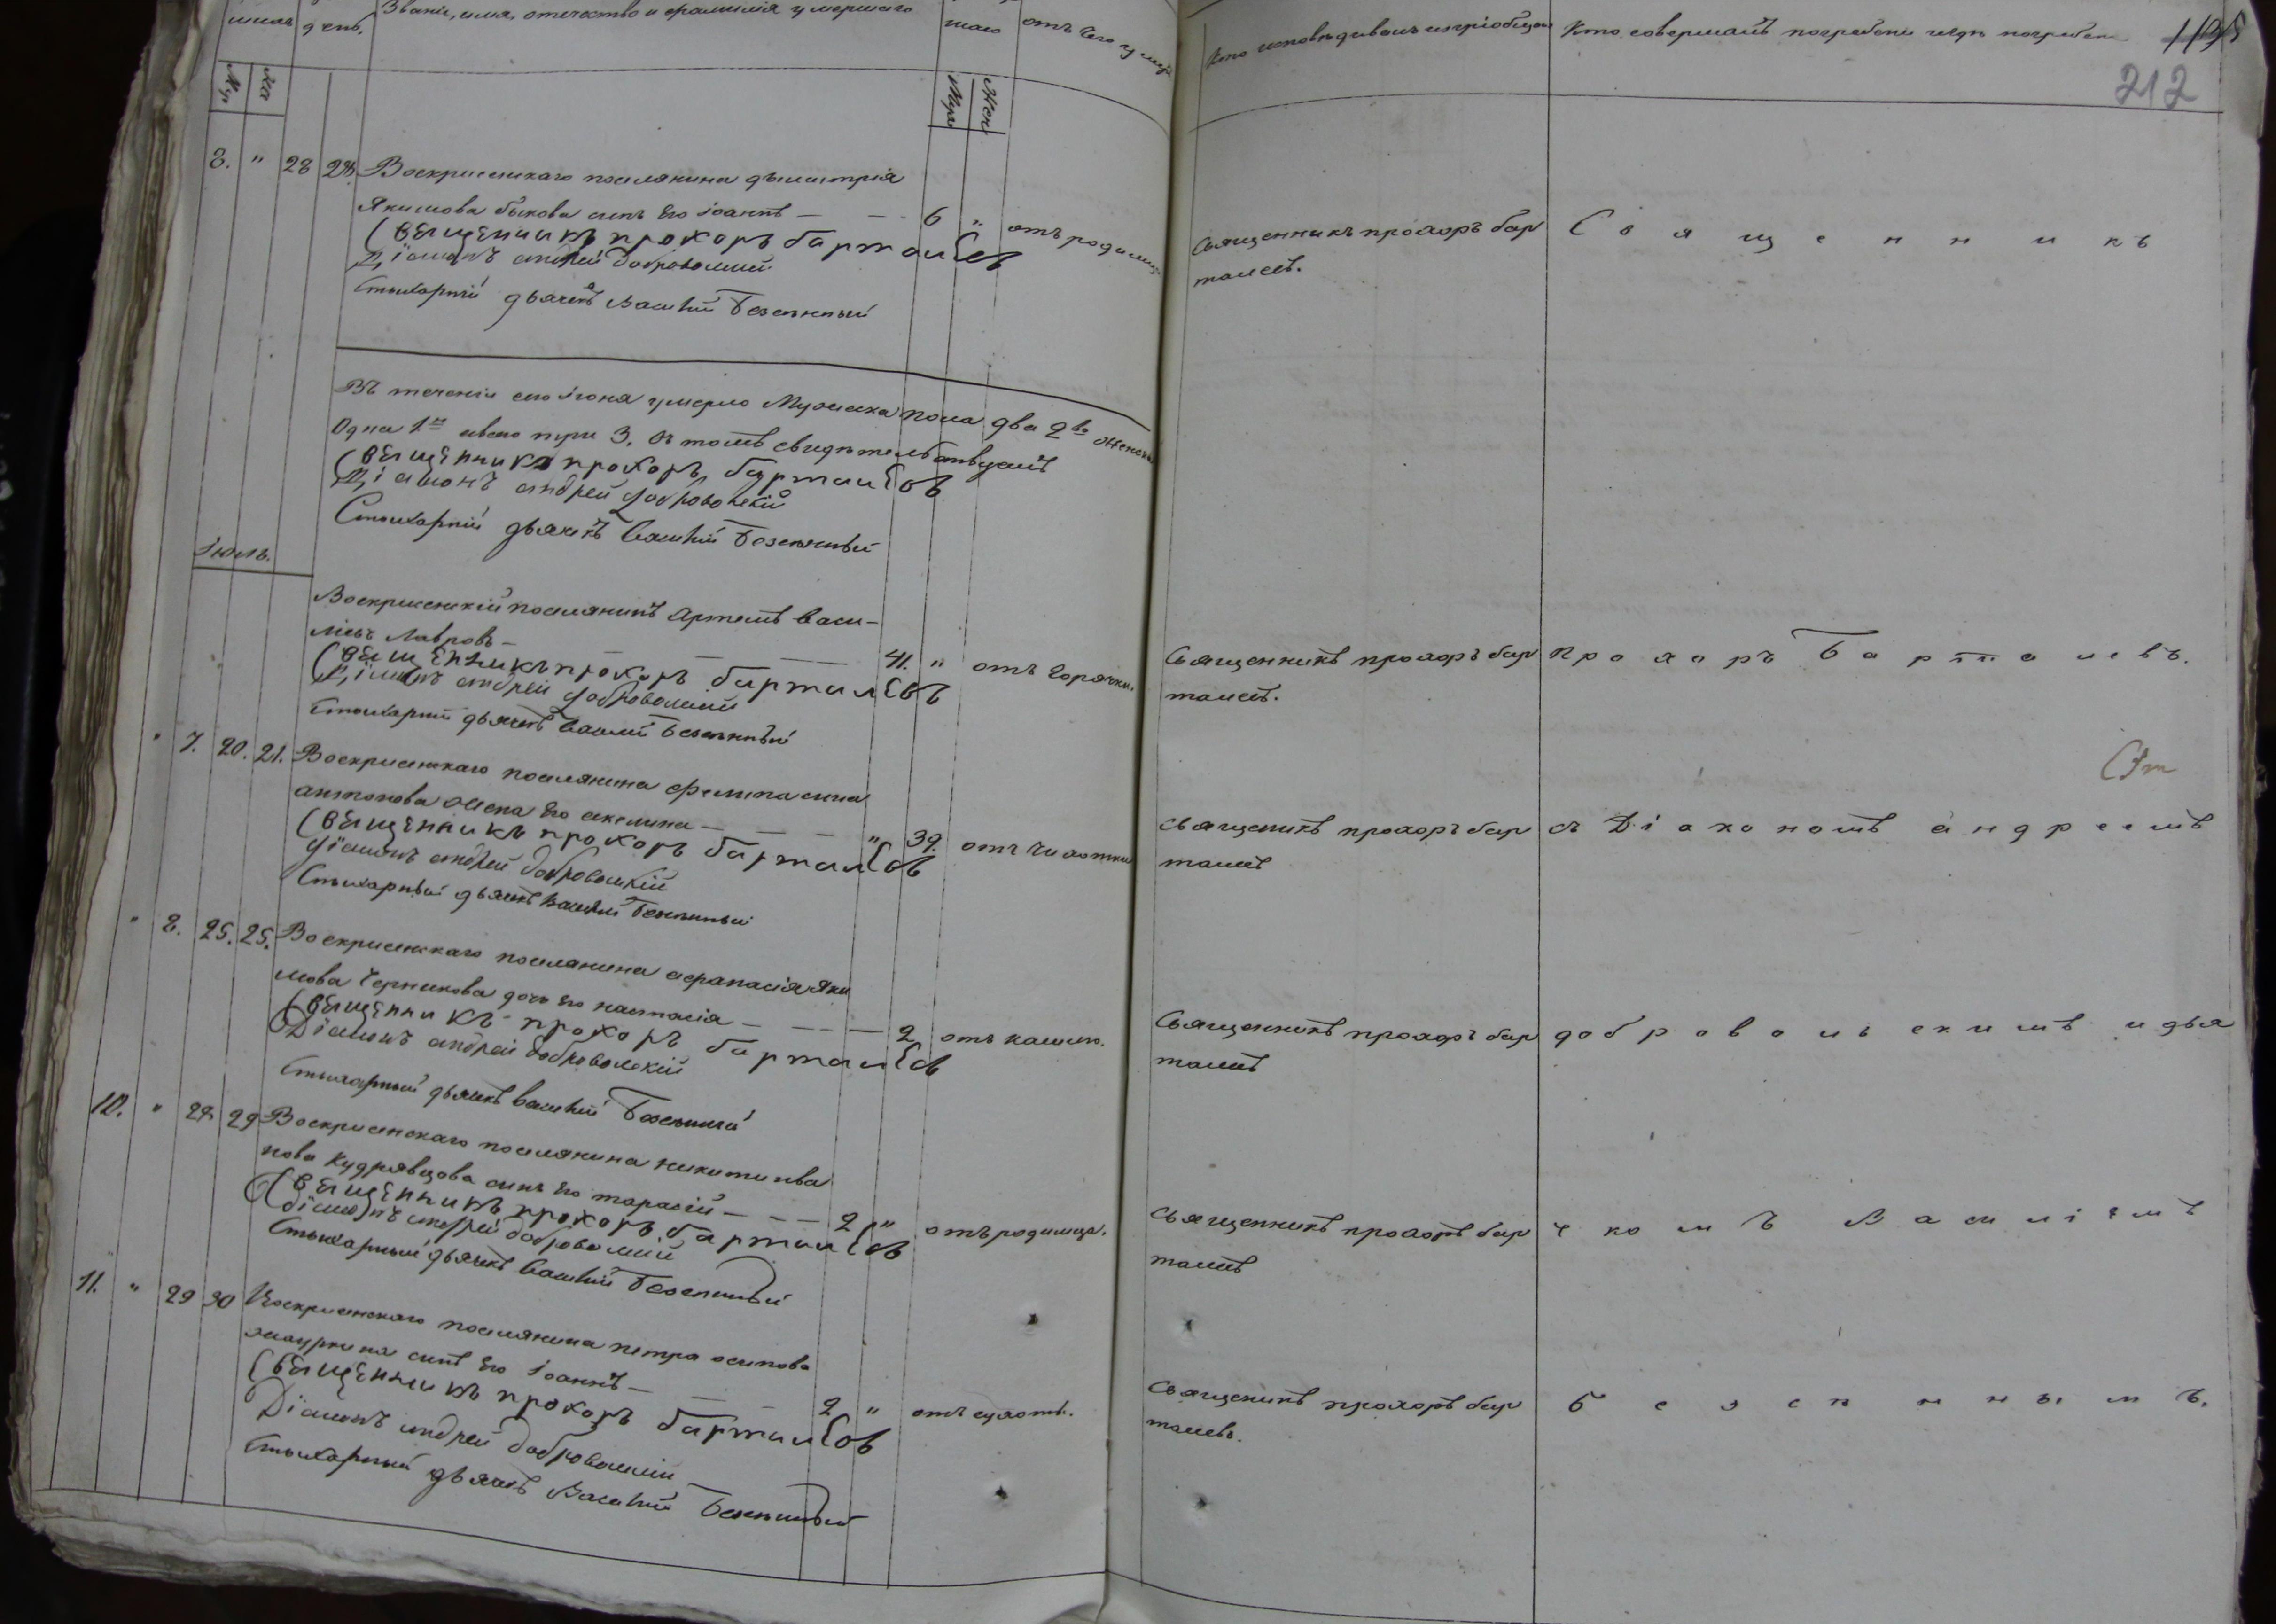 день. Званіе, имя, отечество и фамилія умершаго
отъ чего умер
Кто исповѣдывалъ и пріобщалъ
Кто совершалъ погребеніе и гдѣ погребены
212
Муж Жен
8. " 28 28. Воскрисенскаго поселянина дъмитрія
Якимова быкова сынъ Его іоаннъ — — 6 " отъ родимца
Священникъ прохоръ барталеев
Діаконъ андрей добровольскій
Стихарній дьячекъ Василій Безпятный
Священникъ прохоръ бар
талеевъ.
Въ теченіи сего іюня умерло Мужеска пола два 2ва женска
Одна 1на всего три 3. Въ томъ свидѣтельствуемъ
Священникъ прохоръ барталеев
Діаконъ андрей добровольскій
Стихарній дьячекъ Василій Безпятный
іюль.
Воскрисенскій поселянинъ Артемъ Васи-
ліевъ Лавровъ — — — 41. " отъ горячки.
Священникъ прохоръ барталеев
Діаконъ андрей добровольскій
Стихарній дьячекъ Василій Безпятный
Священникъ прохоръ бар
талеевъ.
" 7. 20. 21. Воскрисенскаго поселянина филипа сына
антонова жена Его акелина — — — " 39. отъ чихотки
Священникъ прохоръ барталеев
Діаконъ андрей добровольскій
Стихарный дьячекъ Василій Безпятный
священикъ прохоръ бар
талеевъ
" 8. 25. 25. Воскрисенскаго поселянина афанасія Яки
мова Черникова дочь Его настасія — — — 2 отъ кашлю.
Священникъ прохоръ барталеев
Діаконъ андрей добровольскій
Стихарный дьячекъ Василій Безпятный
Священникъ прохоръ бар
талеевъ
10. " 28 29 Воскрисенскаго поселянина никиты ива
нова Кудрявцова сынъ Его тарасій — — — 2 " отъ родимца.
Священникъ прохоръ барталеев
Діаконъ андрей добровольскій
Стихарный дьячекъ Василій Безпятный
Священникъ прохоръ бар
талеевъ
11. " 29 30 Воскрисенскаго поселянина петра осипова
сынъ Его іоаннъ — — — 2 " отъ сухоть.
Священникъ прохоръ барталеев
Діаконъ андрей добровольскій
Стихарный дьячекъ Василій Безпятный
Священикъ прохоръ бар
талеевъ.
Священникъ
прохоръ Барталеевъ.
съ Діакономъ андреемъ
добровольскимъ и дья
чкомъ Василіемъ
Безпятнымъ.